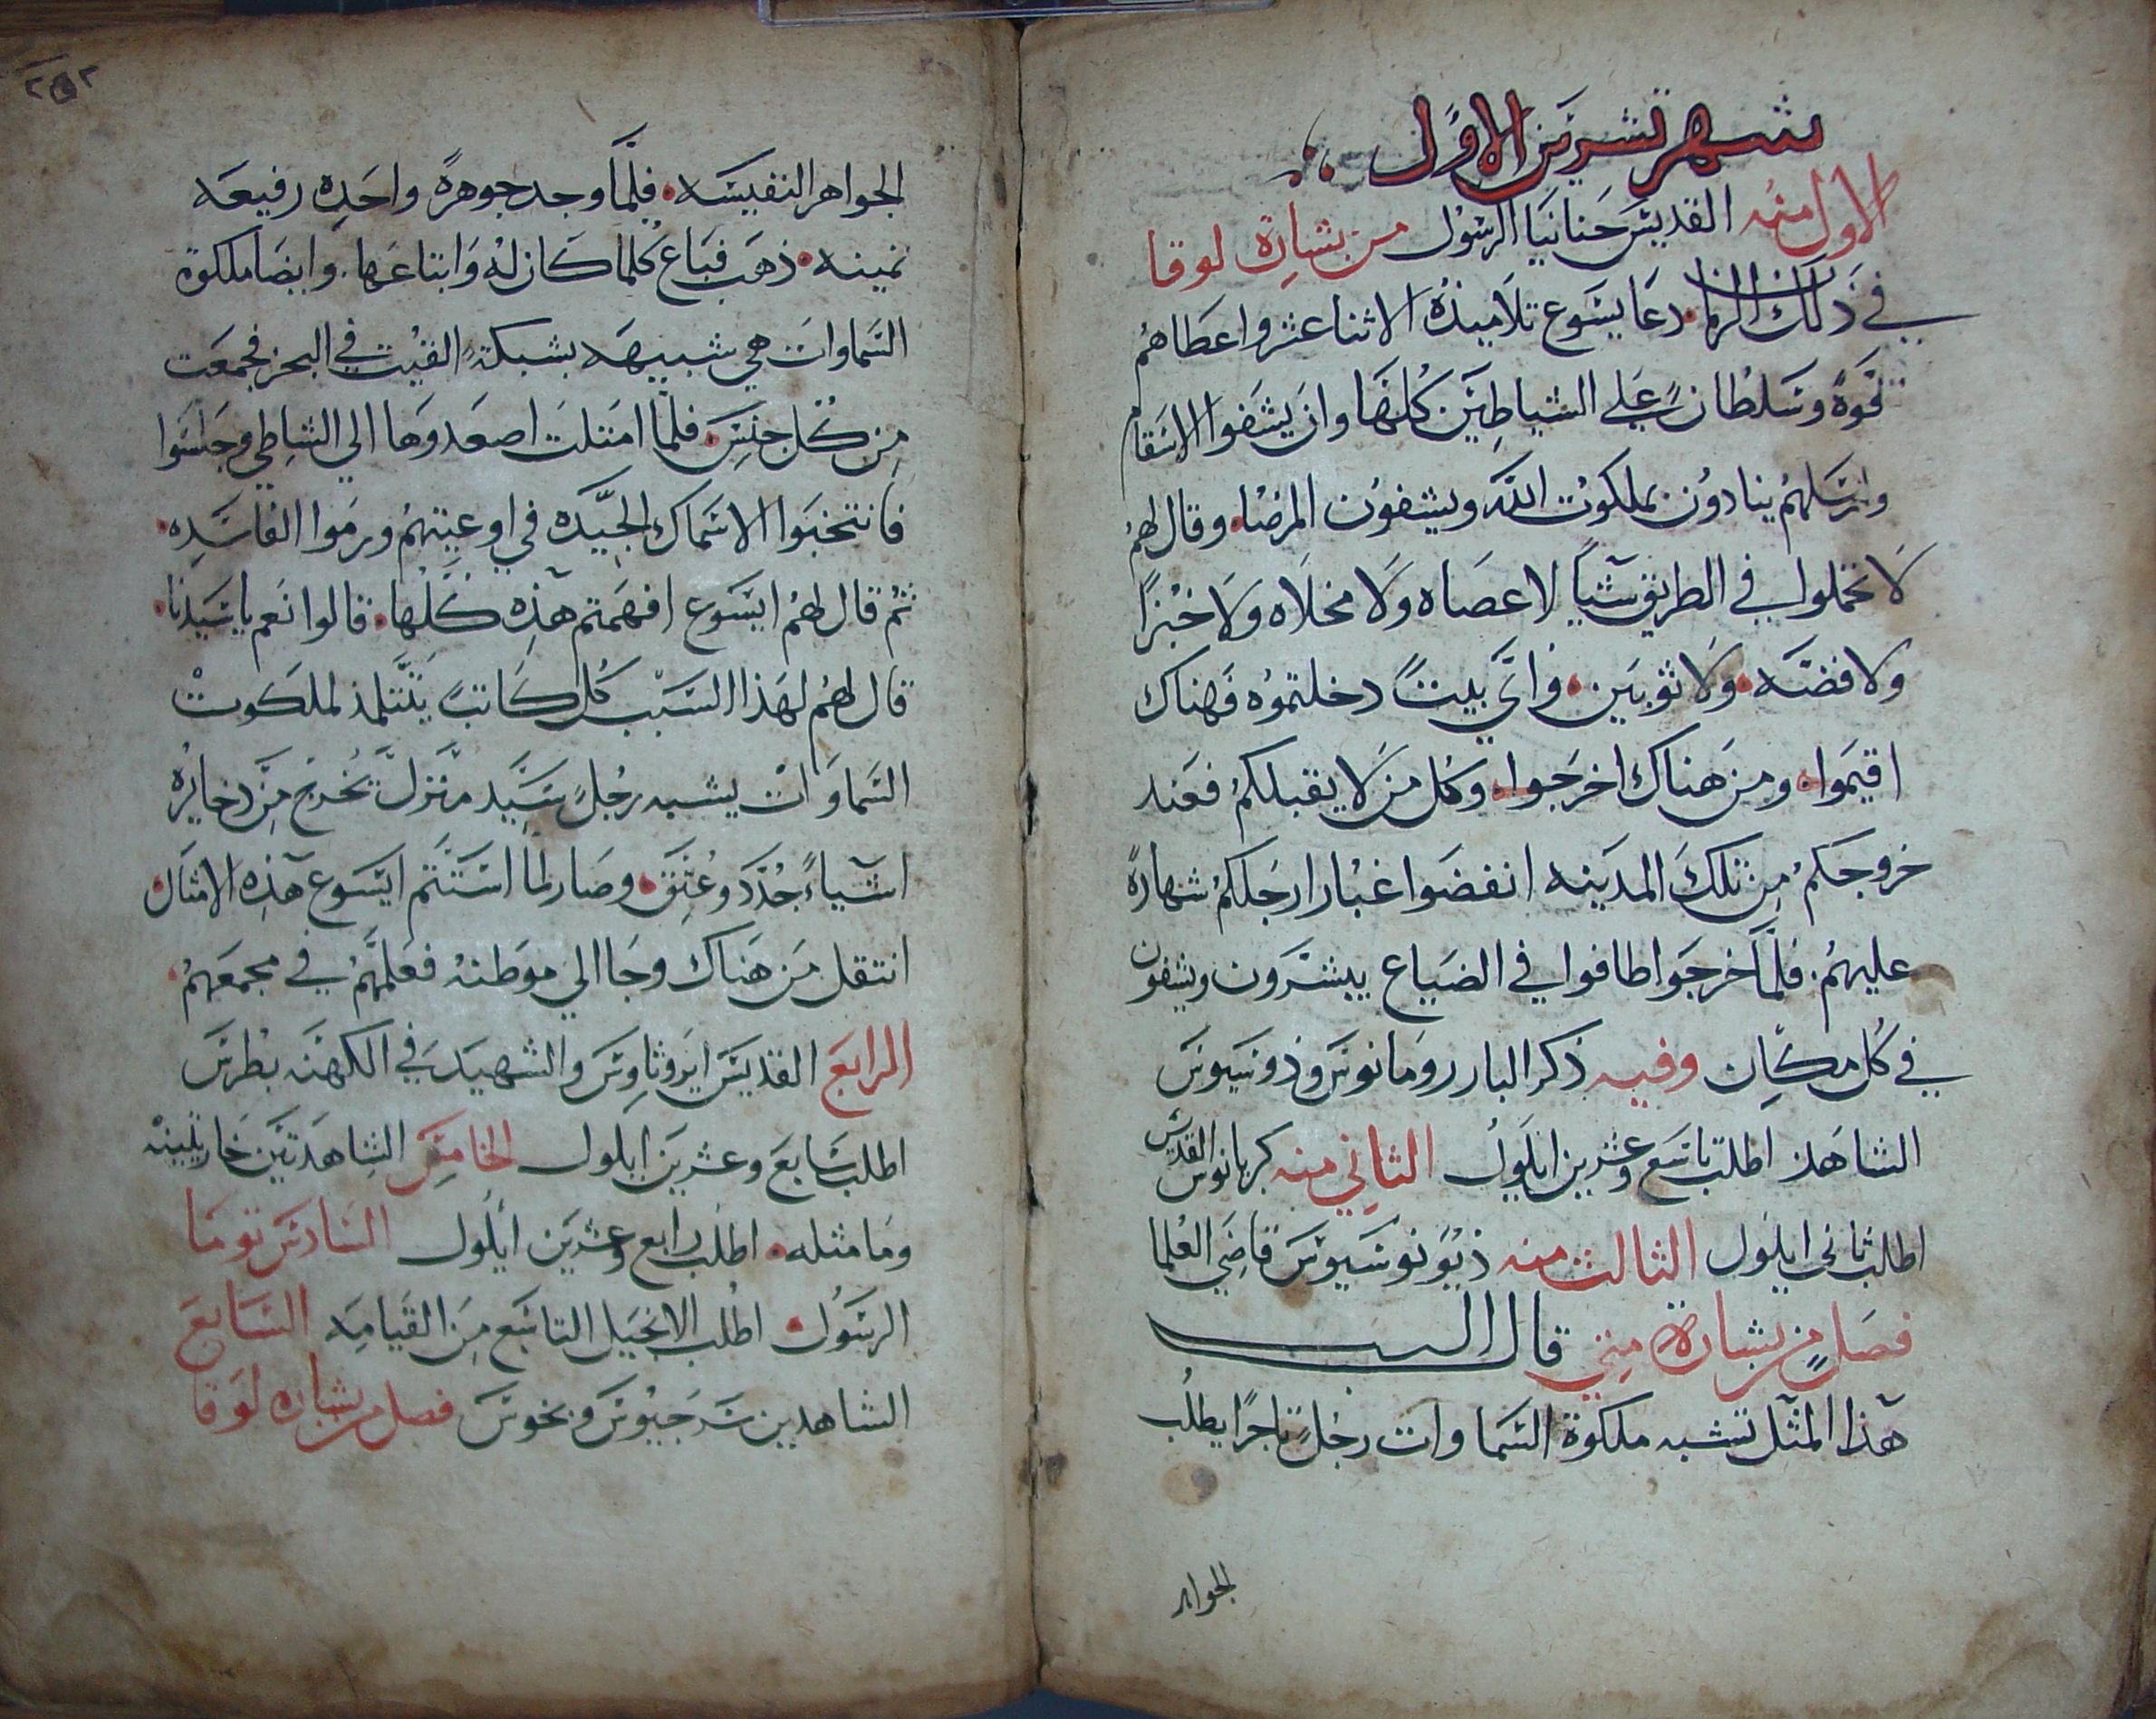 شهر تشرين الاول
الاول منه القديس حنانيا الرسول من بشارة لوقا
في ذلك الزمان دعا يسوع تلاميذه الاثنا عشر واعطاهم
قوة وسلطان علي الشياطين كلها وان يشفوا الاسقام
وارسلهم ينادون بملكوت الله ويشفون المرضا وقال لهم
لا تحملوا في الطريق شياً لا عصاه ولا مخلاه ولا خبزاً
ولا فضه ولا ثوبين واي بيت دخلتموه فهناك
اقيموا ومن هناك اخرجوا وكل من لا يقبلكم فعند
خروجكم من تلك المدينه انفضوا غبار ارجلكم شهادة
عليهم فلما خرجوا طافوا في الضياع يبشرون ويشفون
في كل مكان وفيه ذكر البار رومانوس وذونسيوس
الشاهد اطلب تاسع وعشرين ايلول الثاني منه كربانوس القديس
اطلب ثاني ايلول الثالث منه ذيونوسيوس قاضي العلما
فصل من بشارة متي قال الرب
هذا المثل تشبه ملكوة السماوات رجل تاجراً يطلب
الجواهر
٢٥٢
الجواهر النفيسه فلما وجد جوهرةً واحده رفيعه
ثمينه ذهب فباع كلما كان له وابتاعها وايضا ملكوة
السماوات هي شبيهه بشبكة القيت في البحر فجمعت
من كل جنس فلما امتلت اصعدوها الي الشاطي وجلسوا
فانتخبوا الاسماك الجيده في اوعيتهم ورموا الفاسده
ثم قال لهم ايسوع افهمتم هذه كلها قالوا نعم يا سيدنا
قال لهم لهذا السبب كل كاتب يتتلمذ لملكوت
السماوات يشبه رجل سيد منزل يخرج من دخايره
اشياءً جدد وعتق وصار لما استتم ايسوع هذه الامثال
انتقل من هناك وجا الي موطنه فعلمهم في مجمعهم
الرابع القديس ايروثاوس والشهيد في الكهنه بطرس
اطلب سابع وعشرين ايلول الخامس الشاهدتين خاريتينه
ومامثله اطلب رابع وعشرين ايلول السادس توما
الرسول اطلب الانجيل التاسع من القيامه السابع
الشاهدين سرجيوس وبخوس فصل من بشاره لوقا